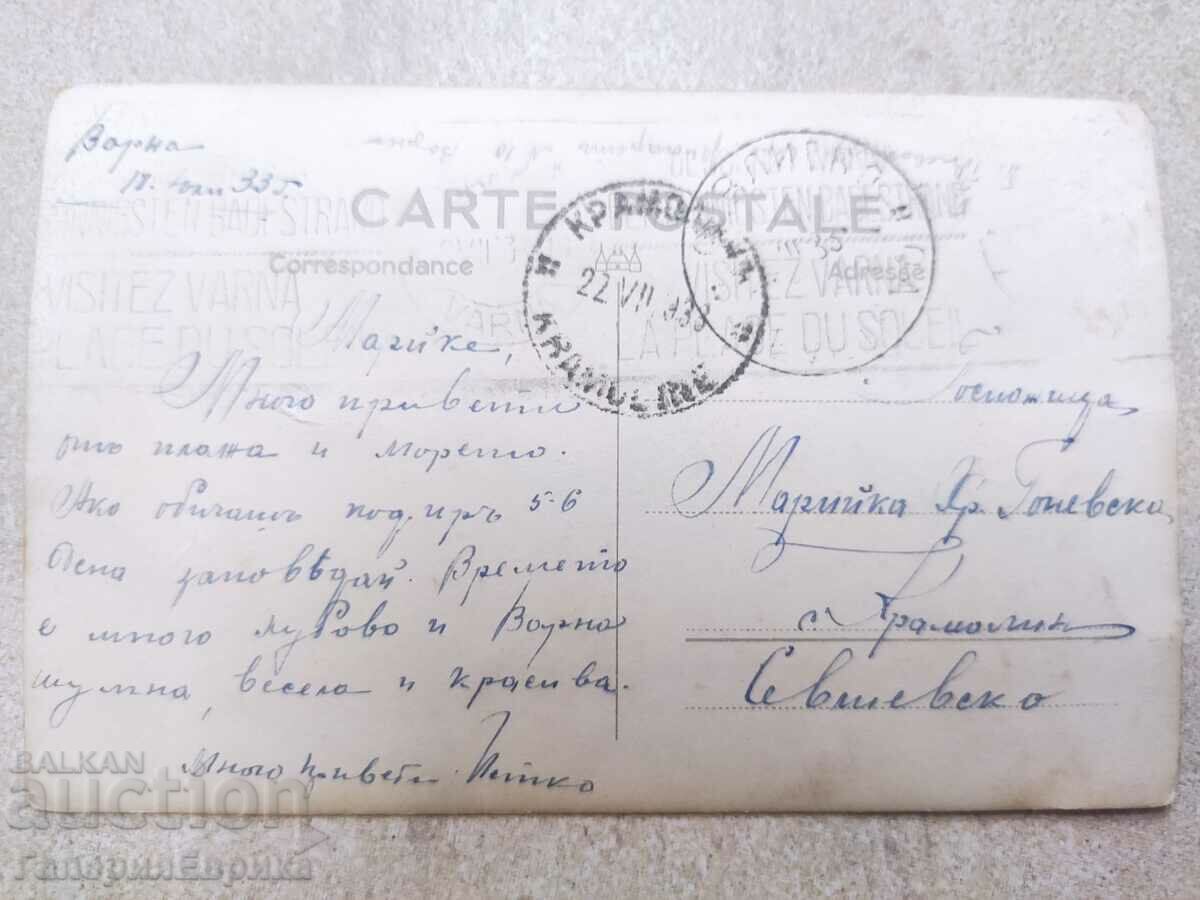 Варна
17. юли 33 г
CARTE POSTALE
Correspondance
Adresse
VISITEZ VARNA
LA PLAGE DU SOLEIL
КРАМОЛИНЪ
22 VII 933
KRAMOLINE
Марийке,
Много привети
отъ плажа и морето.
Ако обичашъ подиръ 5-6
дена заповѣдай. Времето
е много хубаво и Варна
шумна, весела и красива.
Много привети Петко
Госпожица
Марийка Хр. Гоневска
с. Крамолинъ
Севлиевско
BALKAN
auction
ГалерияЕврика